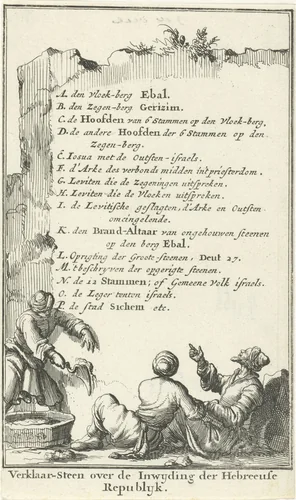 A. den Vloek-berg Ebal.
B. den Zegen-berg Gerizim.
C. de Hoofden van 6 Stammen op den Vloek-berg.
D. de andere Hoofden der 6 Stammen op den
Zegen-berg.
E. Iosua met de Outsten-israels.
F. d'Arke des verbonds midden int priesterdom.
G. Leviten die de Zegeningen uitsproken.
H. Leviten die de Vloeken uitsproken.
I. de Levitische geslagten, d'Arke en Outsten
omcingelende.
K. den Brand-Altaar van ongehouwen steenen
op den berg Ebal.
L. Oprigting der Groote steenen, Deut 27.
M. t'beschryven der opgerigte steenen.
N. de 12 Stammen; of Gemeene Volk israels.
O. de Leger tenten israels.
P. de stad Sichem etc.
Verklaar-Steen over de Inwyding der Hebreeuse
Republyk.